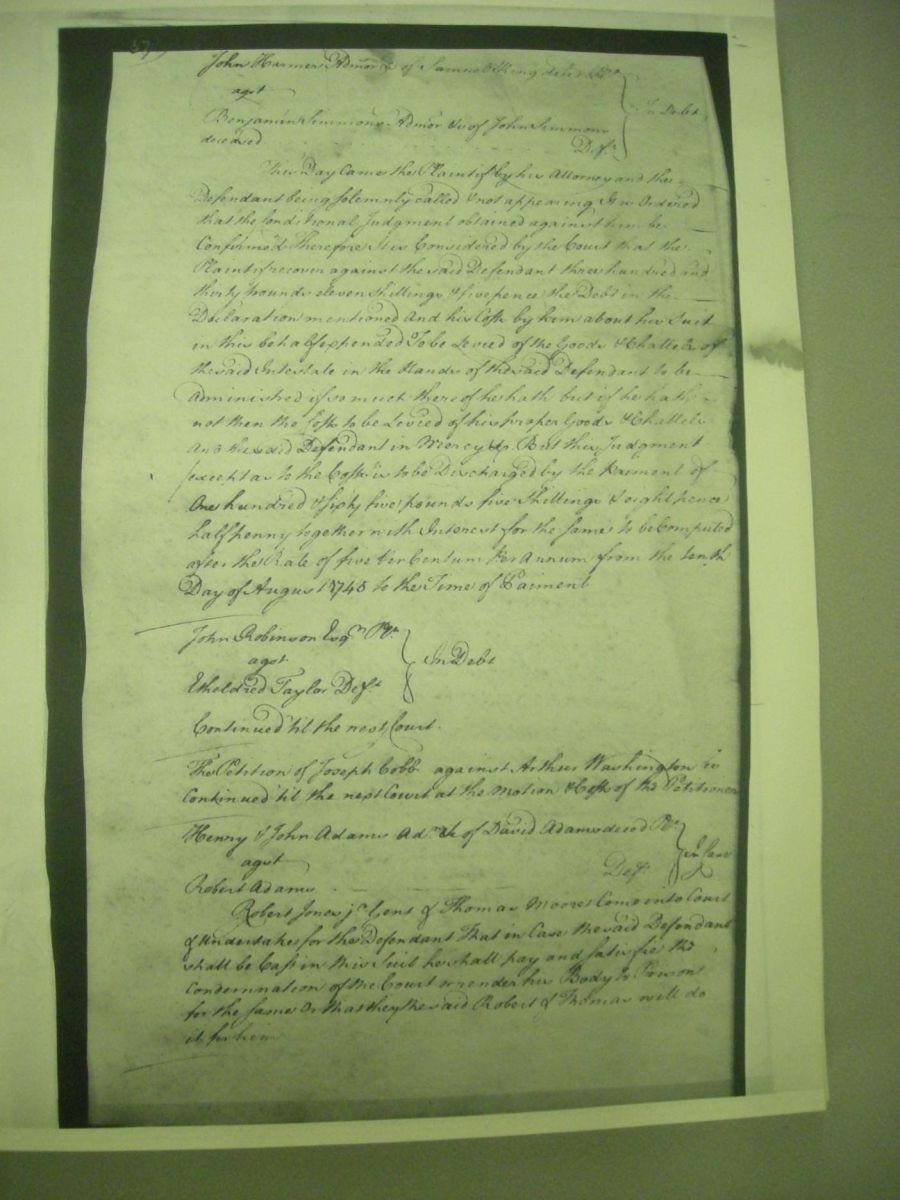 John Harmer Admor &c of Samuel King decd Plt
agst
In Debt
Benjamin Simmons Admor &c of John Simmons
deceased Deft
This Day Came the Plaintif by his Attorney and the
Defendant being Solemnly called & not appearing It is Ordered
that the Conditional Judgment obtained against him be
Confirmed Therefore It is Considered by the Court that the
Plaintif recover against the said Defendant three hundred and
thirty pounds eleven Shillings & five pence the Debt in the
Declaration mentioned And his Costs by him about his Suit
in this behalf expended To be Levied of the Goods & Chattels of
the said Intestate in the Hands of the said Defendant to be
Administred if so much thereof he hath but if he hath
not then the Costs to be Levied of his proper Goods & Chattels
And the said Defendant in Mercy &c But this Judgment
(except as to the Costs is to be Discharged by the Paiment of
One hundred & sixty five pounds five Shillings & eight pence
half penny together with Interest for the same to be Computed
after the Rate of five Per Centum Per Annum from the tenth
Day of August 1745 to the Time of Paiment
John Robinson Esqr Plt
agst
In Debt
Etheldred Taylor Deft
Continued 'til the next Court.
The Petition of Joseph Cobb against Arthur Washington is
Continued 'til the next Court at the Motion & Costs of the Petitioner
Henry & John Adams Adrs &c of David Adams deced Plts
agst
In Case
Deft
Robert Adams
Robert Jones jr Gent & Thomas Moore Come into Court
& undertakes for the Defendant that in Case the said Defendant
shall be Cast in this Suit he shall pay and satisfie the
Condemnation of the Court or render his Body to Prison
for the same Or that they the said Robert & Thomas will do
it for him